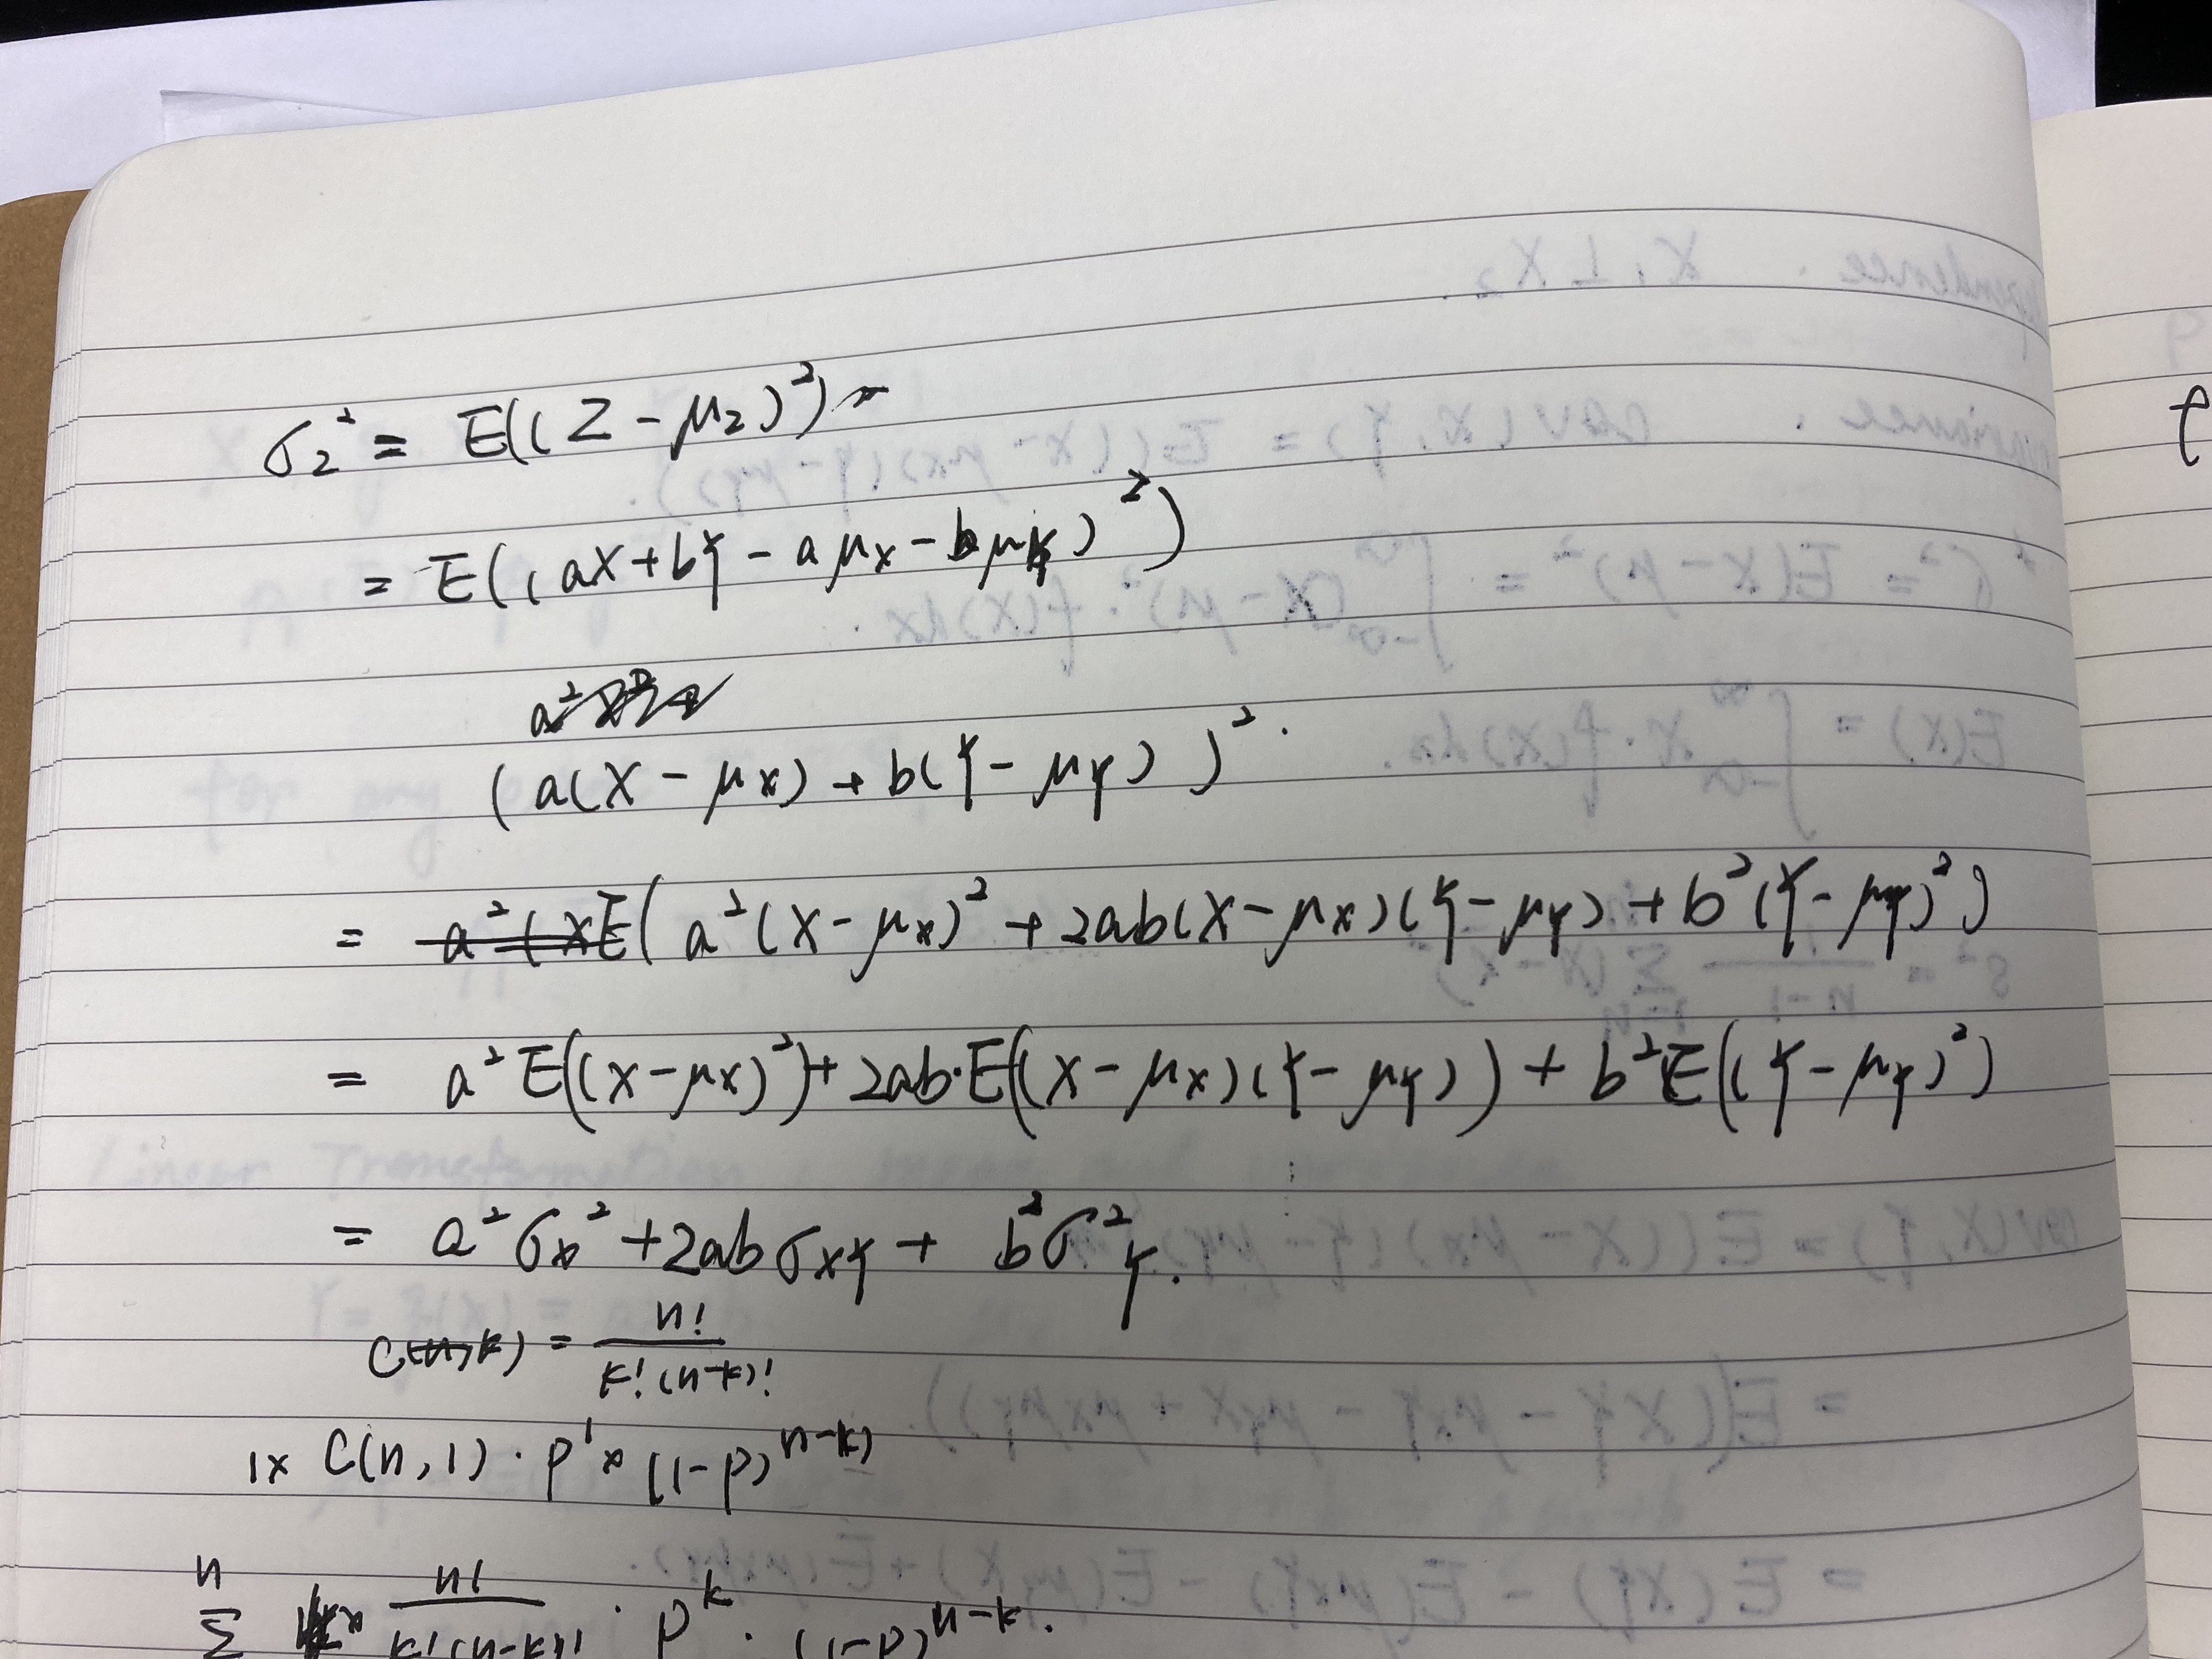 σ_Z² = E((Z - μ_Z)²) =
= E((aX + bY - aμ_X - bμ_Y)²)
a²
(a(X - μ_X) + b(Y - μ_Y))².
= a²(X E(a²(X - μ_X)² + 2ab(X - μ_X)(Y - μ_Y) + b²(Y - μ_Y)²)
= a²E((X - μ_X)²) + 2ab·E((X - μ_X)(Y - μ_Y)) + b²E((Y - μ_Y)²)
= a²σ_X² + 2abσ_XY + b²σ²_Y.
C(n,k) = n! / k!(n-k)!
1× C(n,1) · p¹ × (1-p)^(n-k)
n
Σ n! / k!(n-k)! · p^k · (1-p)^(n-k).